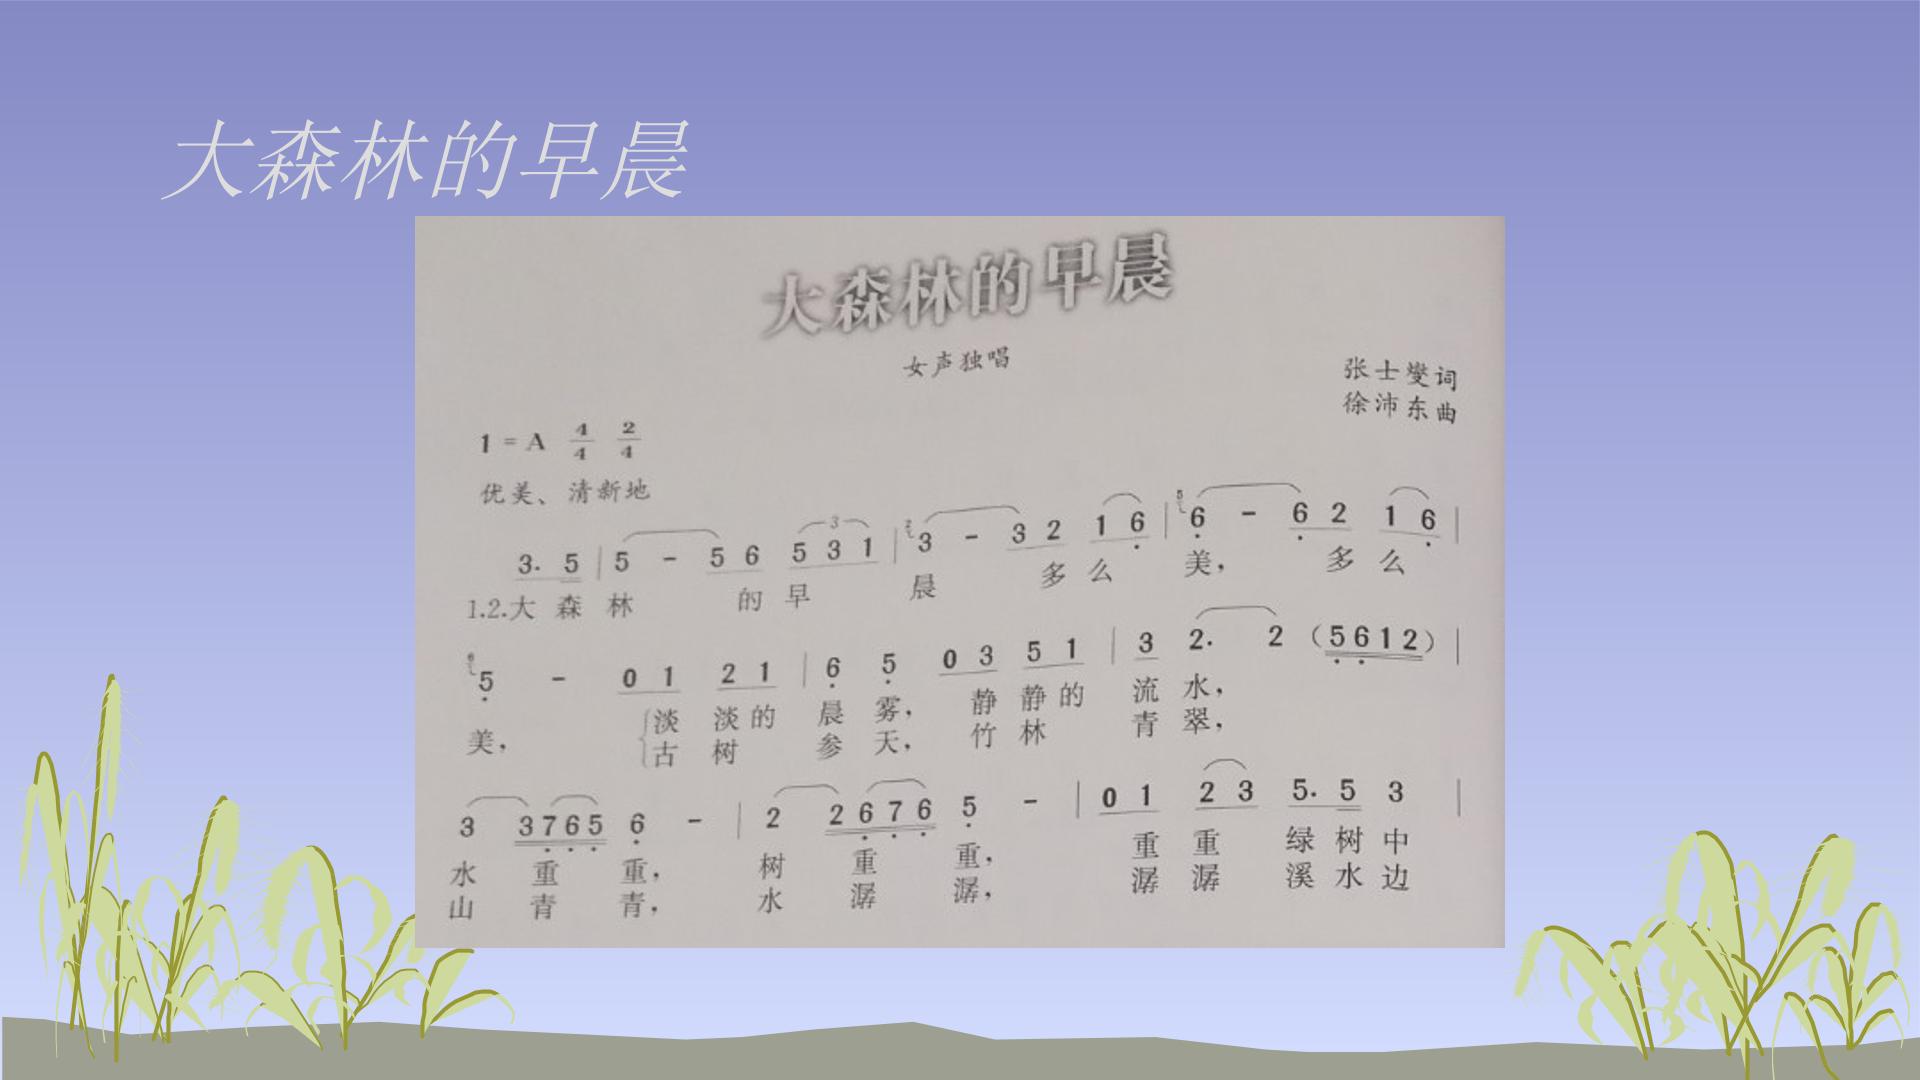 大森林的早晨
大森林的早晨
女声独唱
张士燮词
徐沛东曲
1 = A 4/4 2/4
优美、清新地
3. 5 | 5 - 5 6 5 3 1 | 3 - 3 2 1 6 | 6 - 6 2 1 6 |
1.2.大 森 林 的 早 晨 多 么 美, 多 么
5 - 0 1 2 1 | 6 5 0 3 5 1 | 3 2. 2 (5 6 1 2) |
美, 淡 淡 的 晨 雾, 静 静 的 流 水,
古 树 参 天, 竹 林 青 翠,
3 3 7 6 5 6 - | 2 2 6 7 6 5 - | 0 1 2 3 5. 5 3 |
水 重 重, 树 重 重, 重 重 绿 树 中
山 青 青, 水 潺 潺, 潺 潺 溪 水 边